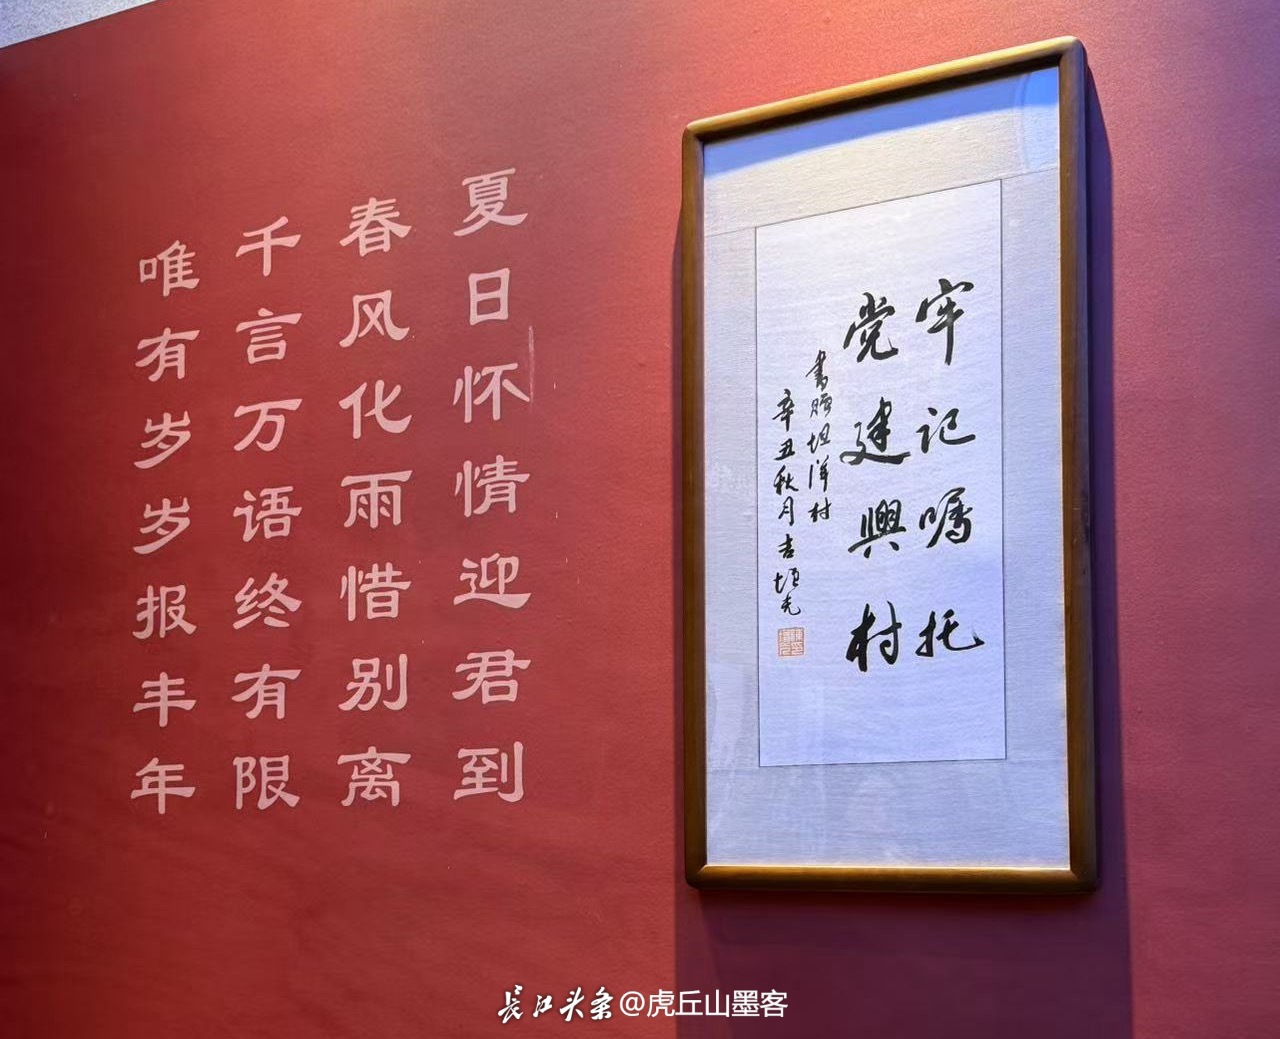 夏日怀情迎君到
春风化雨惜别离
千言万语终有限
唯有岁岁报丰年
牢记嘱托
党建興村
书赠坦洋村
辛丑秋月
長江头条@虎丘山墨客